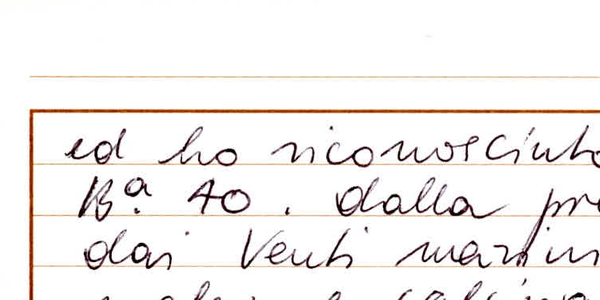 ed ho riconosciuto
Bª. 40. dalla pre
dai Venti marin